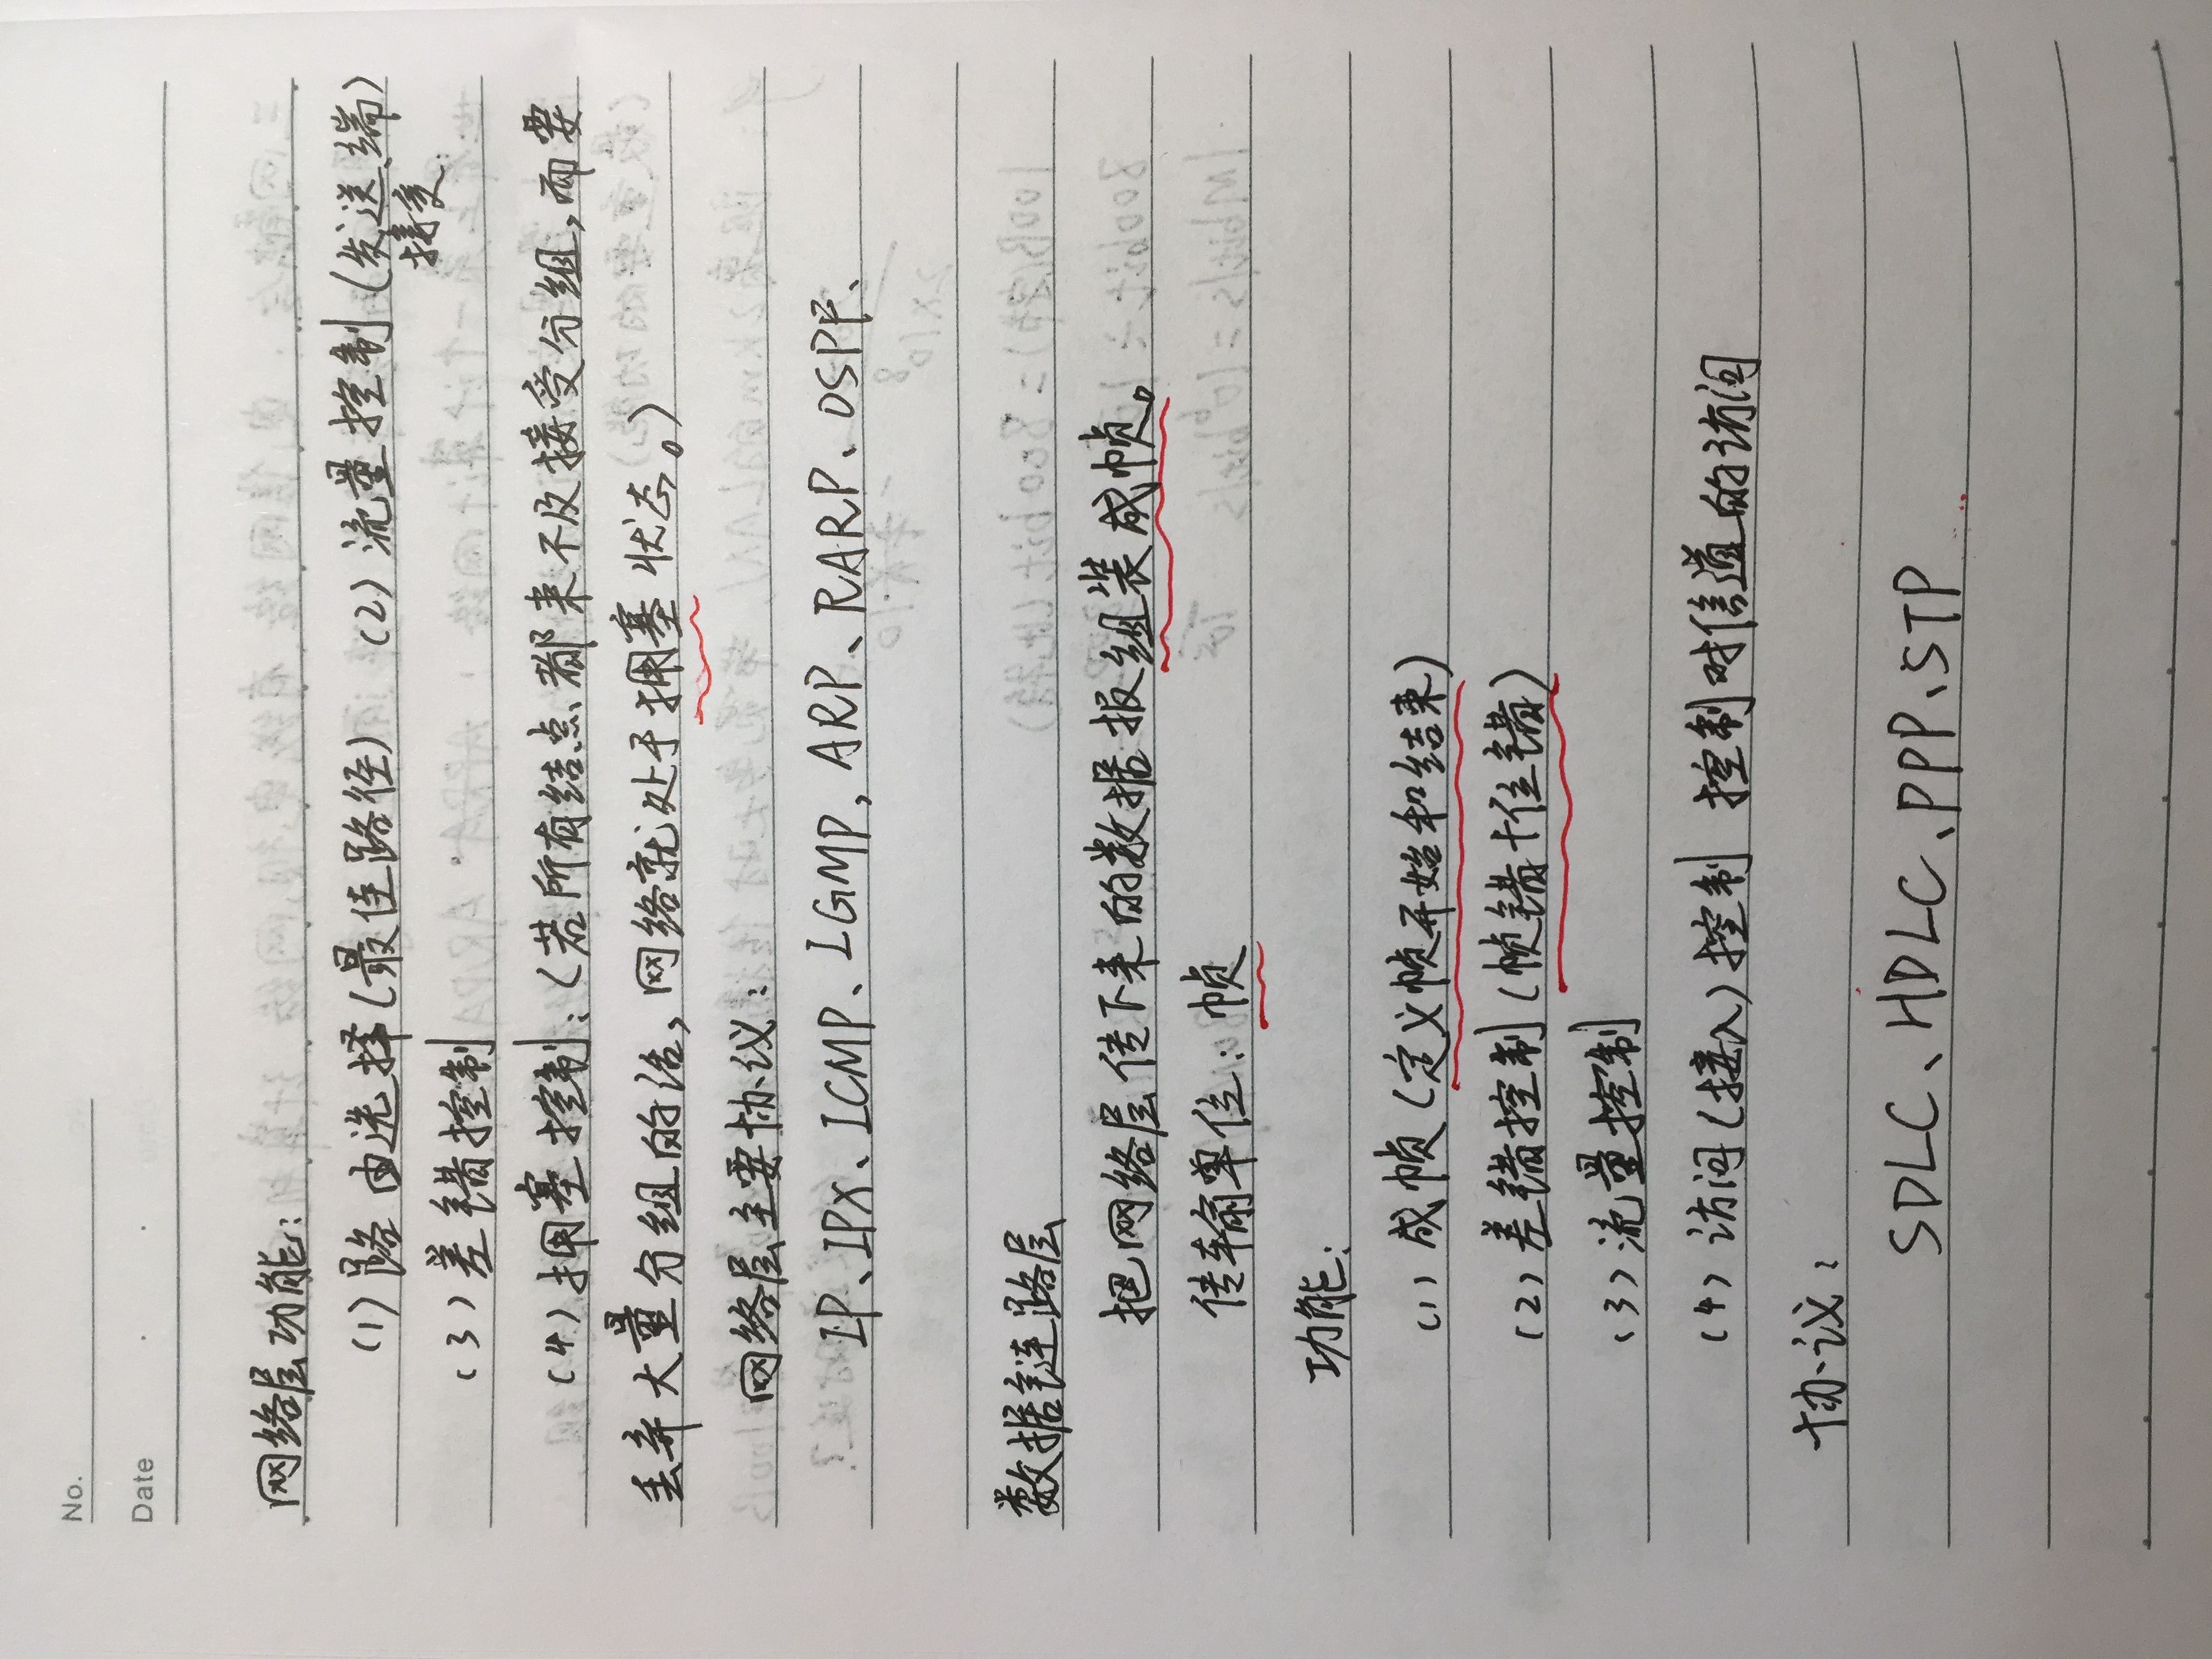 No.
Date
网络层功能:
(1)路由选择(最佳路径) (2)流量控制(发送端)
接受
(3)差错控制
(4)拥塞控制:(若所有结点都来不及接受分组,而要
丢弃大量分组的话,网络就处于拥塞状态。)
网络层主要协议:
IP、IPX、ICMP、IGMP,ARP、RARP、OSPF、
数据链路层
把网络层传下来的数据报组装成帧。
传输单位:帧
功能:
(1)成帧(定义帧开始和结束)
(2)差错控制(帧错+位错)
(3)流量控制
(4)访问(接入)控制 控制对信道的访问
协议:
SDLC、HDLC、PPP、STP